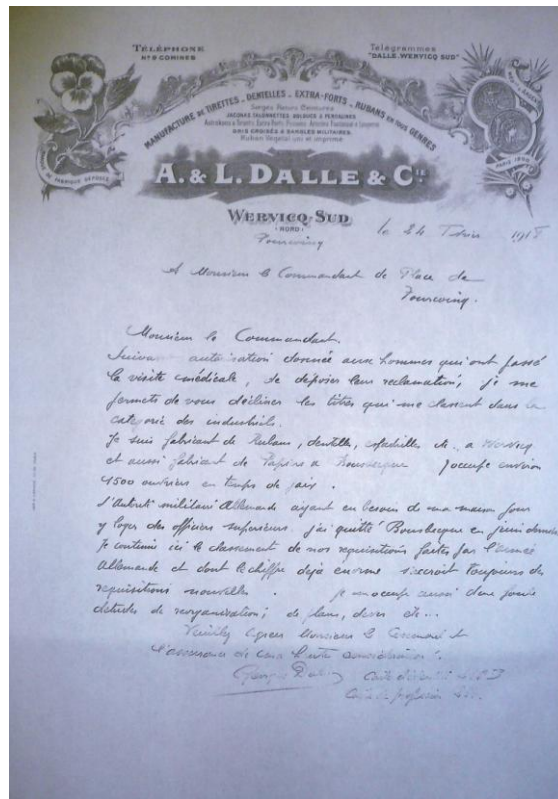 TÉLÉPHONE
Nº 9 COMINES
Télégrammes
"DALLE. WERVICQ SUD"
MANUFACTURE DE TIRETTES _ DENTELLES _ EXTRA-FORTS _ RUBANS EN TOUS GENRES
JACONAS, TALONNETTES, BOLDUCS & PERCALINES
MARQUE DE FABRIQUE DÉPOSÉE
PARIS 1900
A. & L. DALLE & Cie
WERVICQ-SUD
(NORD)
Tourcoing
le 24 1918
A Monsieur le Commandant de Place de
Tourcoing.
Monsieur le Commandant
Suivant autorisation donnée aux hommes qui ont passé
la visite médicale, de déposer leur reclamation, je me
permets de vous décliner les titres qui me classent dans la
categorie des industriels.
Je suis fabricant de Rubans, dentelle, etc. a Wervicq
et aussi fabricant de Papier a Bousbecque j'occupe environ
1500 ouvriers en temps de paix.
L'autorité militaire Allemande ayant eu besoin de ma maison pour
y loger des officiers superieurs, j'ai quitté Bousbecque en juin dernier
Je continue ici le classement de nos requisitions faites par l'armée
Allemande et dont le chiffre deja enorme s'accroit toujours de
requisitions nouvelles. je m'occupe aussi d'une
d'etudes de reorganisation; de plans, devis etc...
Veuillez agréer Monsieur le Commandant
l'assurance de ma haute consideration.
Georges Dalle